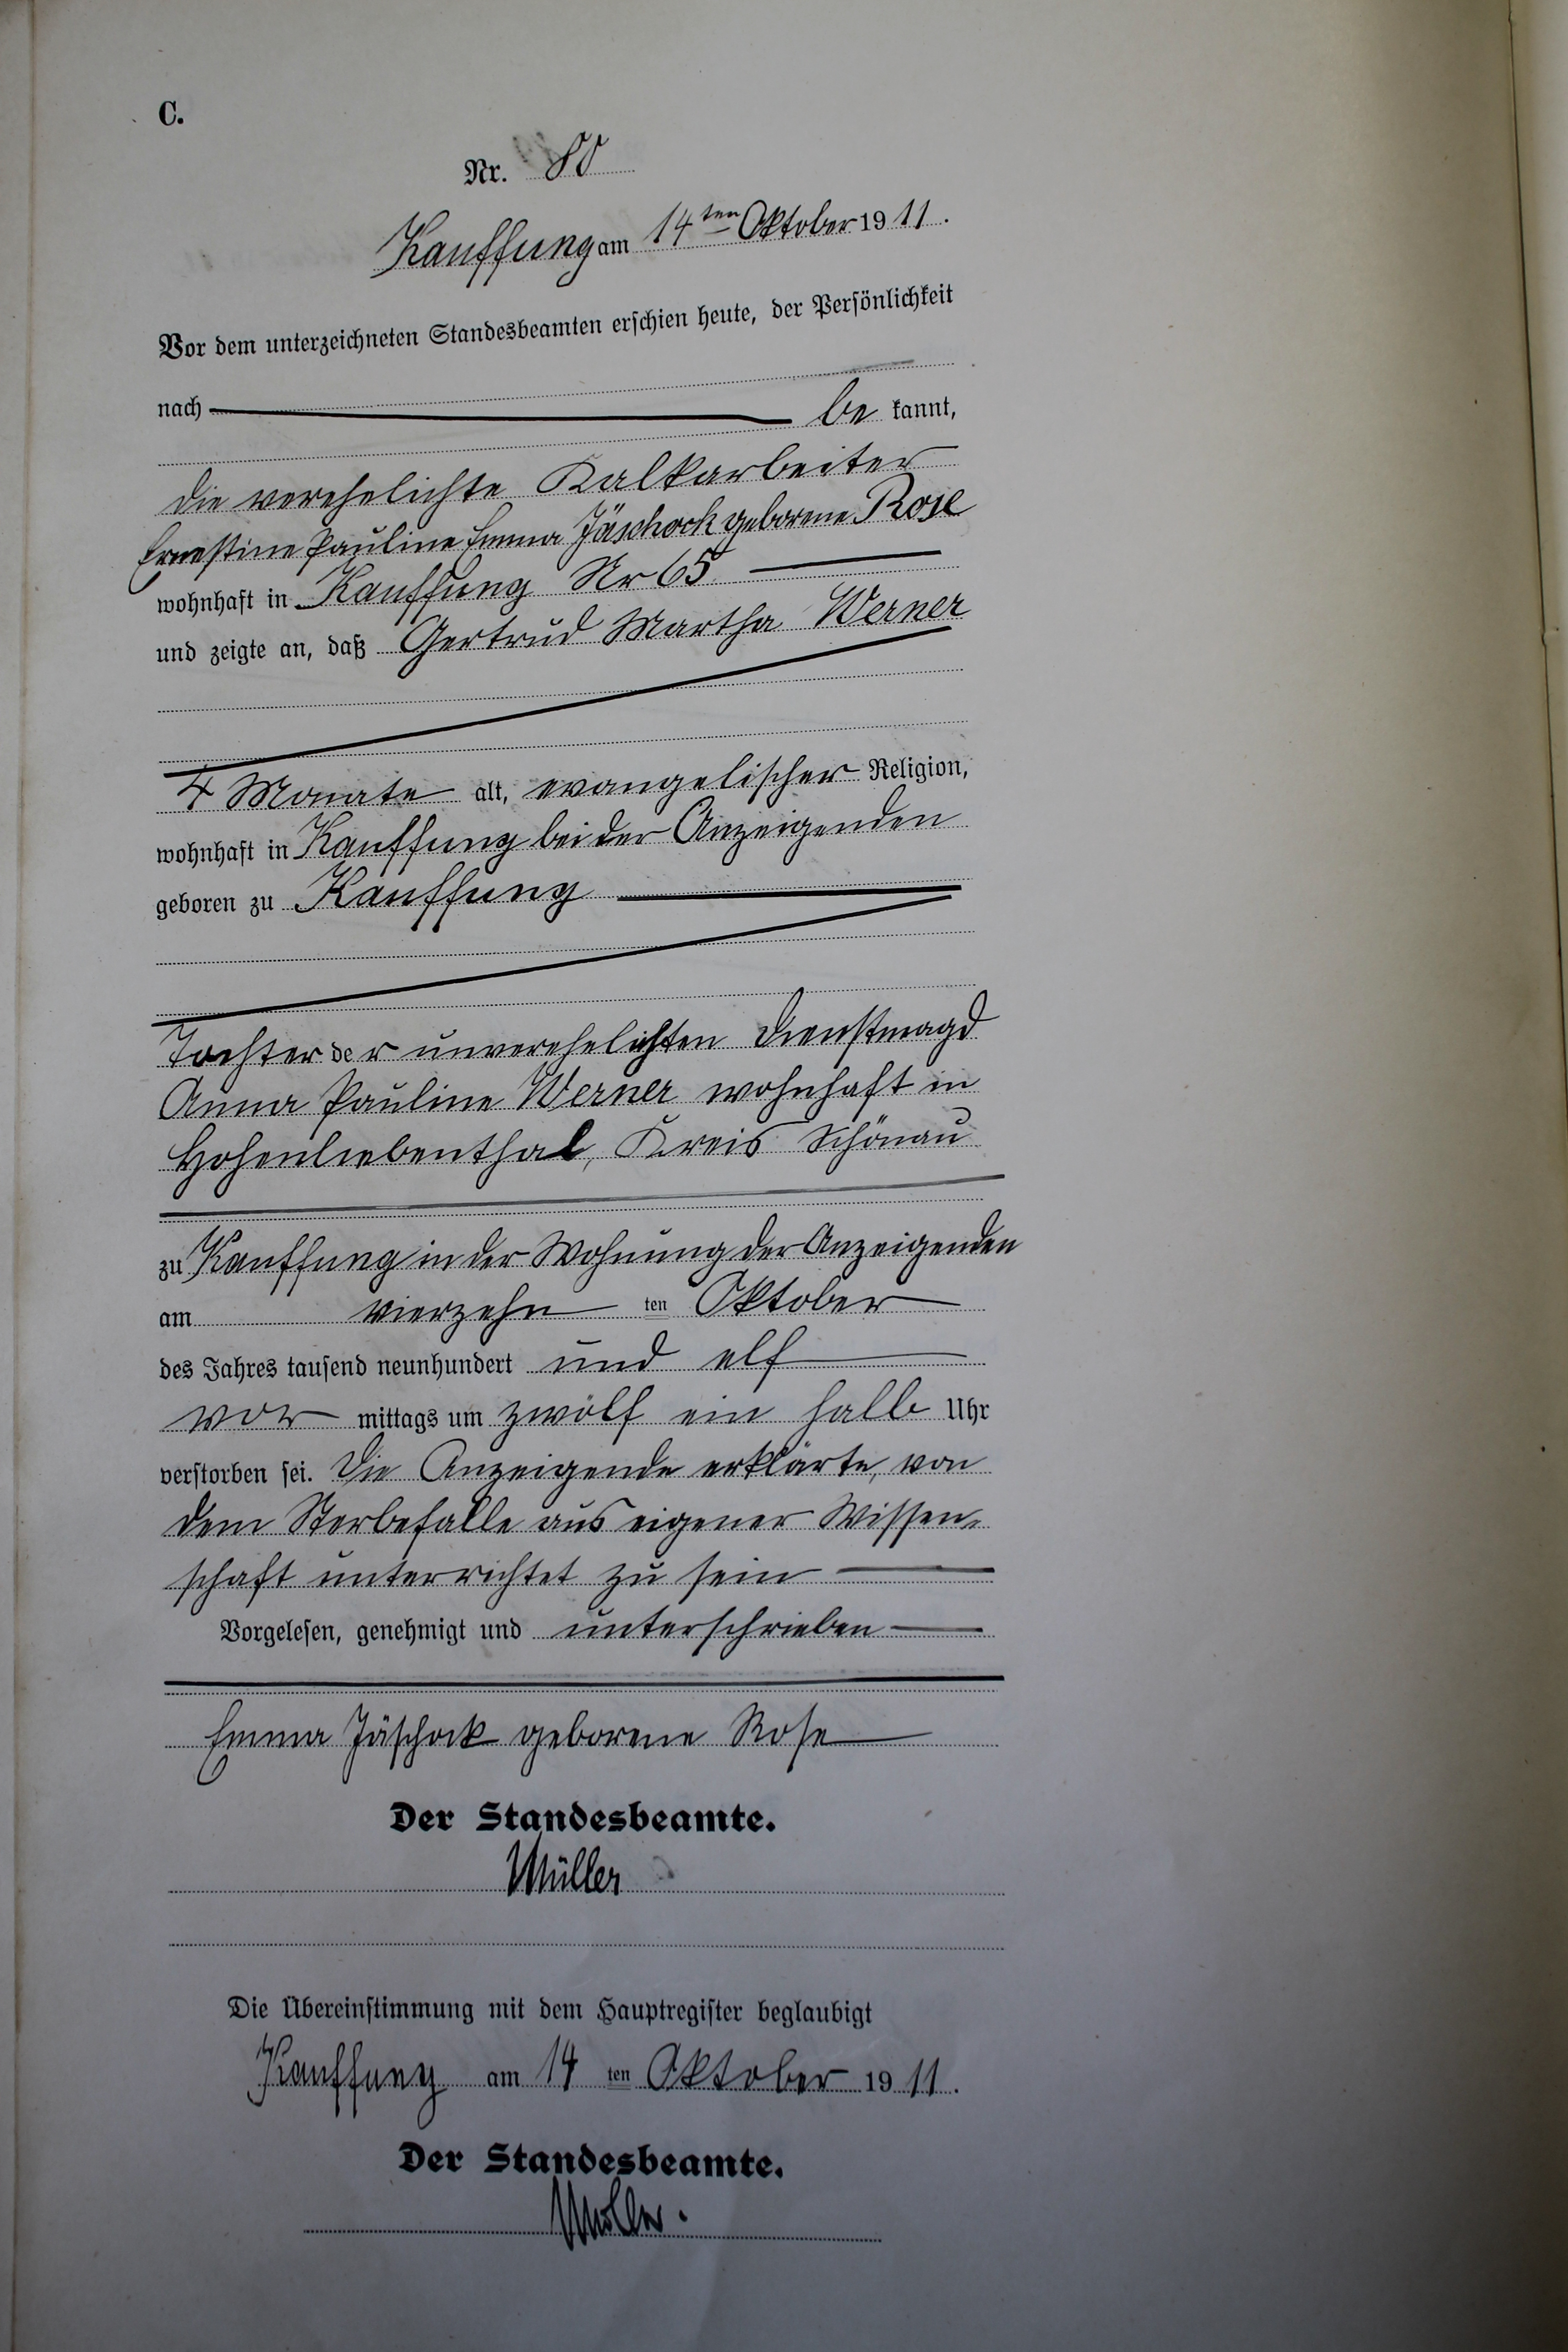 C.
Nr. 80
Kauffung am 14ten Oktober 1911.
Vor dem unterzeichneten Standesbeamten erschien heute, der Persönlichkeit
nach be kannt,
die verehelichte Kalkarbeiter
Ernestine Pauline Emma Jäschock geborene Rose
wohnhaft in Kauffung Nr 65
und zeigte an, daß Gertrud Martha Werner
4 Monate alt, evangelischer Religion,
wohnhaft in Kauffung bei der Anzeigenden
geboren zu Kauffung
Tochter der unverehelichten Dienstmagd
Anna Pauline Werner wohnhaft in
Hohenliebenthal, Kreis Schönau
zu Kauffung in der Wohnung der Anzeigenden
am vierzehn ten Oktober
des Jahres tausend neunhundert und elf
vor mittags um zwölf ein halb Uhr
verstorben sei. Die Anzeigende erklärte, von
dem Sterbefalle aus eigener Wissen-
schaft unterrichtet zu sein
Vorgelesen, genehmigt und unterschrieben
Emma Jäschock geborene Rose
Der Standesbeamte.
Müller
Die Übereinstimmung mit dem Hauptregister beglaubigt
Kauffung am 14 ten Oktober 1911.
Der Standesbeamte.
Müller.